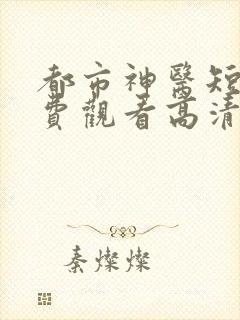 都市神醫短
費觀看高清
秦燦燦